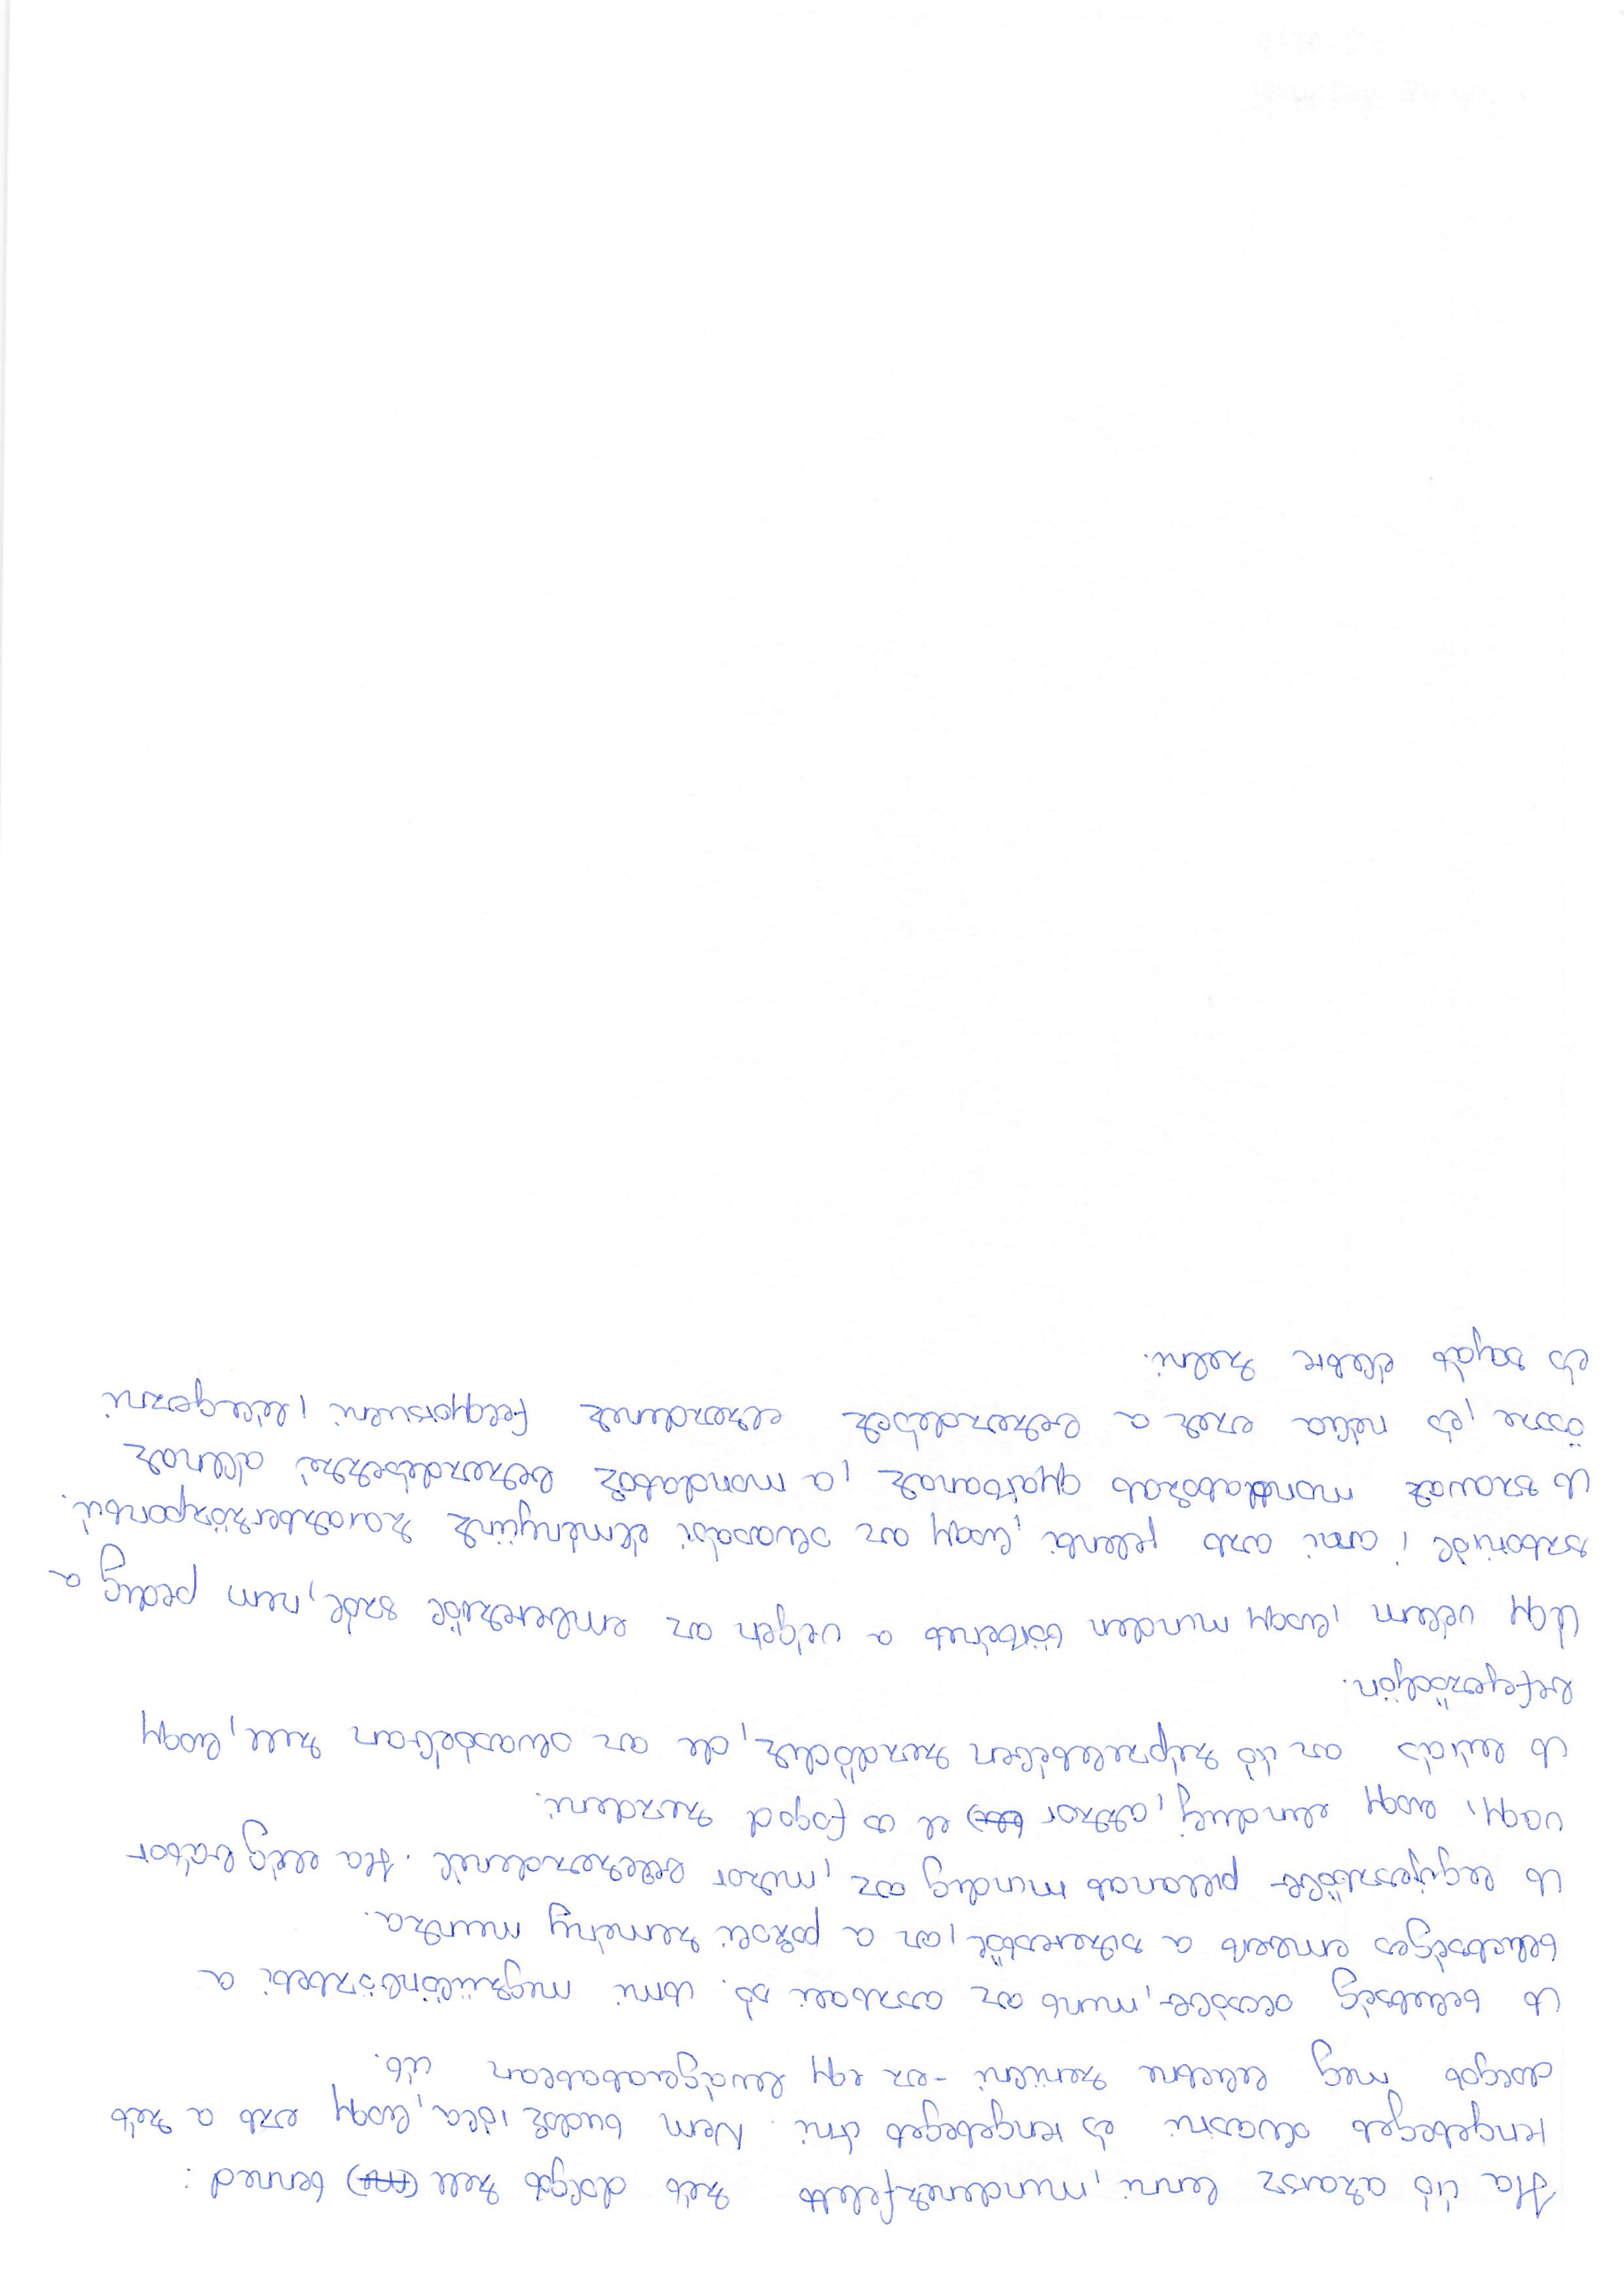 Ha író akarsz lenni, mindenekfelett két dolgot kell (mi) tenned:
rengeteget olvasni és rengeteget írni. Nem tudok róla, hogy ezt a két
dolgot meg lehetne kerülni - ez egy levághatatlan út.
A tehetség olcsóbb, mint az asztali só. Ami megkülönbözteti a
tehetséges embert a sikerestől, az a pokoli kemény munka.
A legijesztőbb pillanat mindig az, mikor belekezdenél. Ha elég bátor
vagy, hogy elindulj, akkor el is fogod kezdeni.
A leírás az író képzeletében kezdődik, de az olvasóéban kell, hogy
befejeződjön.
Úgy vélem, hogy minden történet a végén az emberekről szól, nem pedig a
sztoriról, ami azt jelenti, hogy az olvasási élményünk karakterközpontú.
A szavak mondatokat gyártanak, a mondatok bekezdésekké állnak
össze, és néha ezek a bekezdések elkezdenek felgyorsulni, lélegezni
és saját életre kelni.